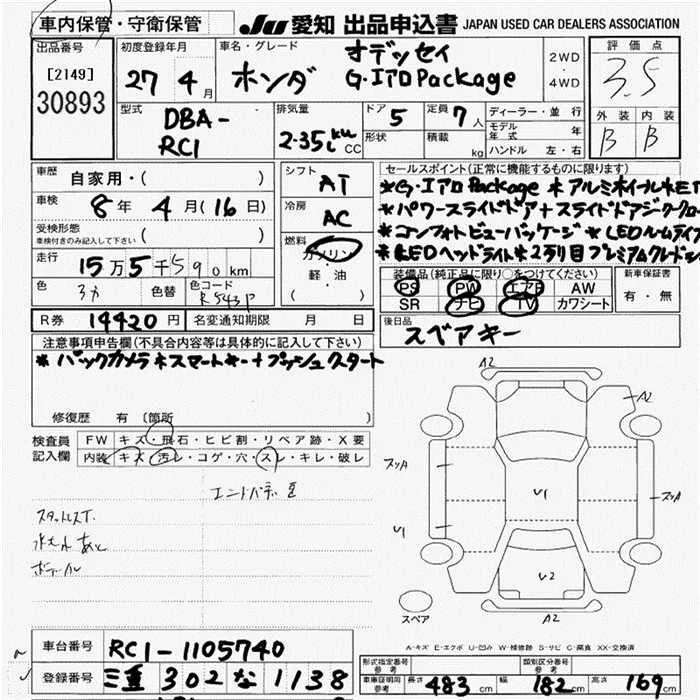 車内保管・守衛保管
JU 愛知 出品申込書 JAPAN USED CAR DEALERS ASSOCIATION
出品番号
[2149]
30893
初度登録年月
27 4月
車名・グレード
オデッセイ
ホンダ G・エアロPackage
2WD
・
4WD
評価点
3.5
外装 内装
B B
型式
DBA-
RC1
排気量
2.35L
CC
ドア
5
定員
7人
形状
積載
kg
ディーラー・並行
モデル年式 年
ハンドル 左・右
車歴
自家用・( )
車検
8年 4月(16日)
受検形態
車検付きのみ記入して下さい ( )
走行
15万5千590km
色
色替
色コード
R543P
シフト
AT
冷房
AC
燃料
ガソリン
・
軽・油
( )
セールスポイント(正常に機能するものに限ります)
*G・エアロPackage *アルミホイール*ET
*パワースライドドア+スライドドアイージークロー
*コンフォートビューパッケージ *LEDルームライ
*LEDヘッドライト*2列目プレミアムクレードル
装備品(純正品に限り○をつけてください)
PS PW エアB AW
SR ナビ TV カワシート
新車保証書
有・無
R券 14420円
名変通知期限 月 日
後日品
スペアキー
注意事項申告欄(不具合内容等は具体的に記入して下さい)
*バックカメラ*スマートキー+プッシュスタート
修復歴 有(箇所 )
検査員
記入欄
FW キズ・飛石・ヒビ割・リペア跡・X要
内装 キズ・汚レ・コゲ・穴・スレ・キレ・破レ
エンドパネル
スタットレスT.
A2
A2
スリA
スリA
U1
U1
U2
A2
スペア
A-キズ E-エクボ U-凹み W-補修跡 S-サビ C-腐食 XX-交換済
車台番号
RC1-1105740
登録番号
三重 302 な 1138
形式指定番号
参考
類別区分番号
参考
車庫証明用
参考
長さ 483cm 幅 182cm 高さ 169cm